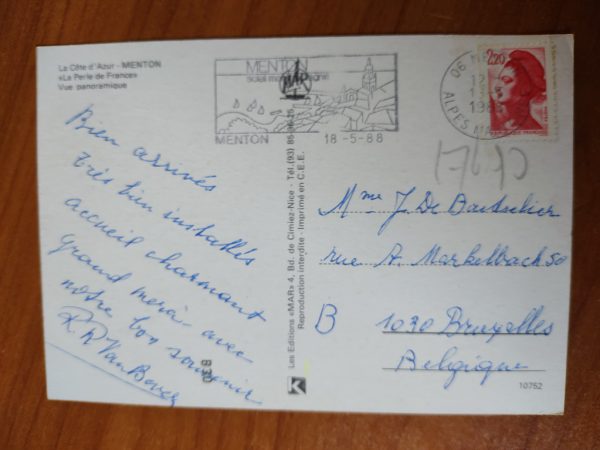 La Côte d'Azur - MENTON
«La Perle de France»
Vue panoramique
Bien arrivés
très bien installés
accueil charmant
Grand merci - avec
notre bon souvenir
MENTON
MENTON
18-5-88
06 MENTON
ALPES MAR
2,20
Les Editions «MAR» 4, Bd. de Cimiez-Nice - Tél. (93)
Reproduction interdite - Imprimé en C.E.E.
Mme J. De Baetselier
rue A. Markelbach 50
B 1030 Bruxelles
Belgique
830
K
10752